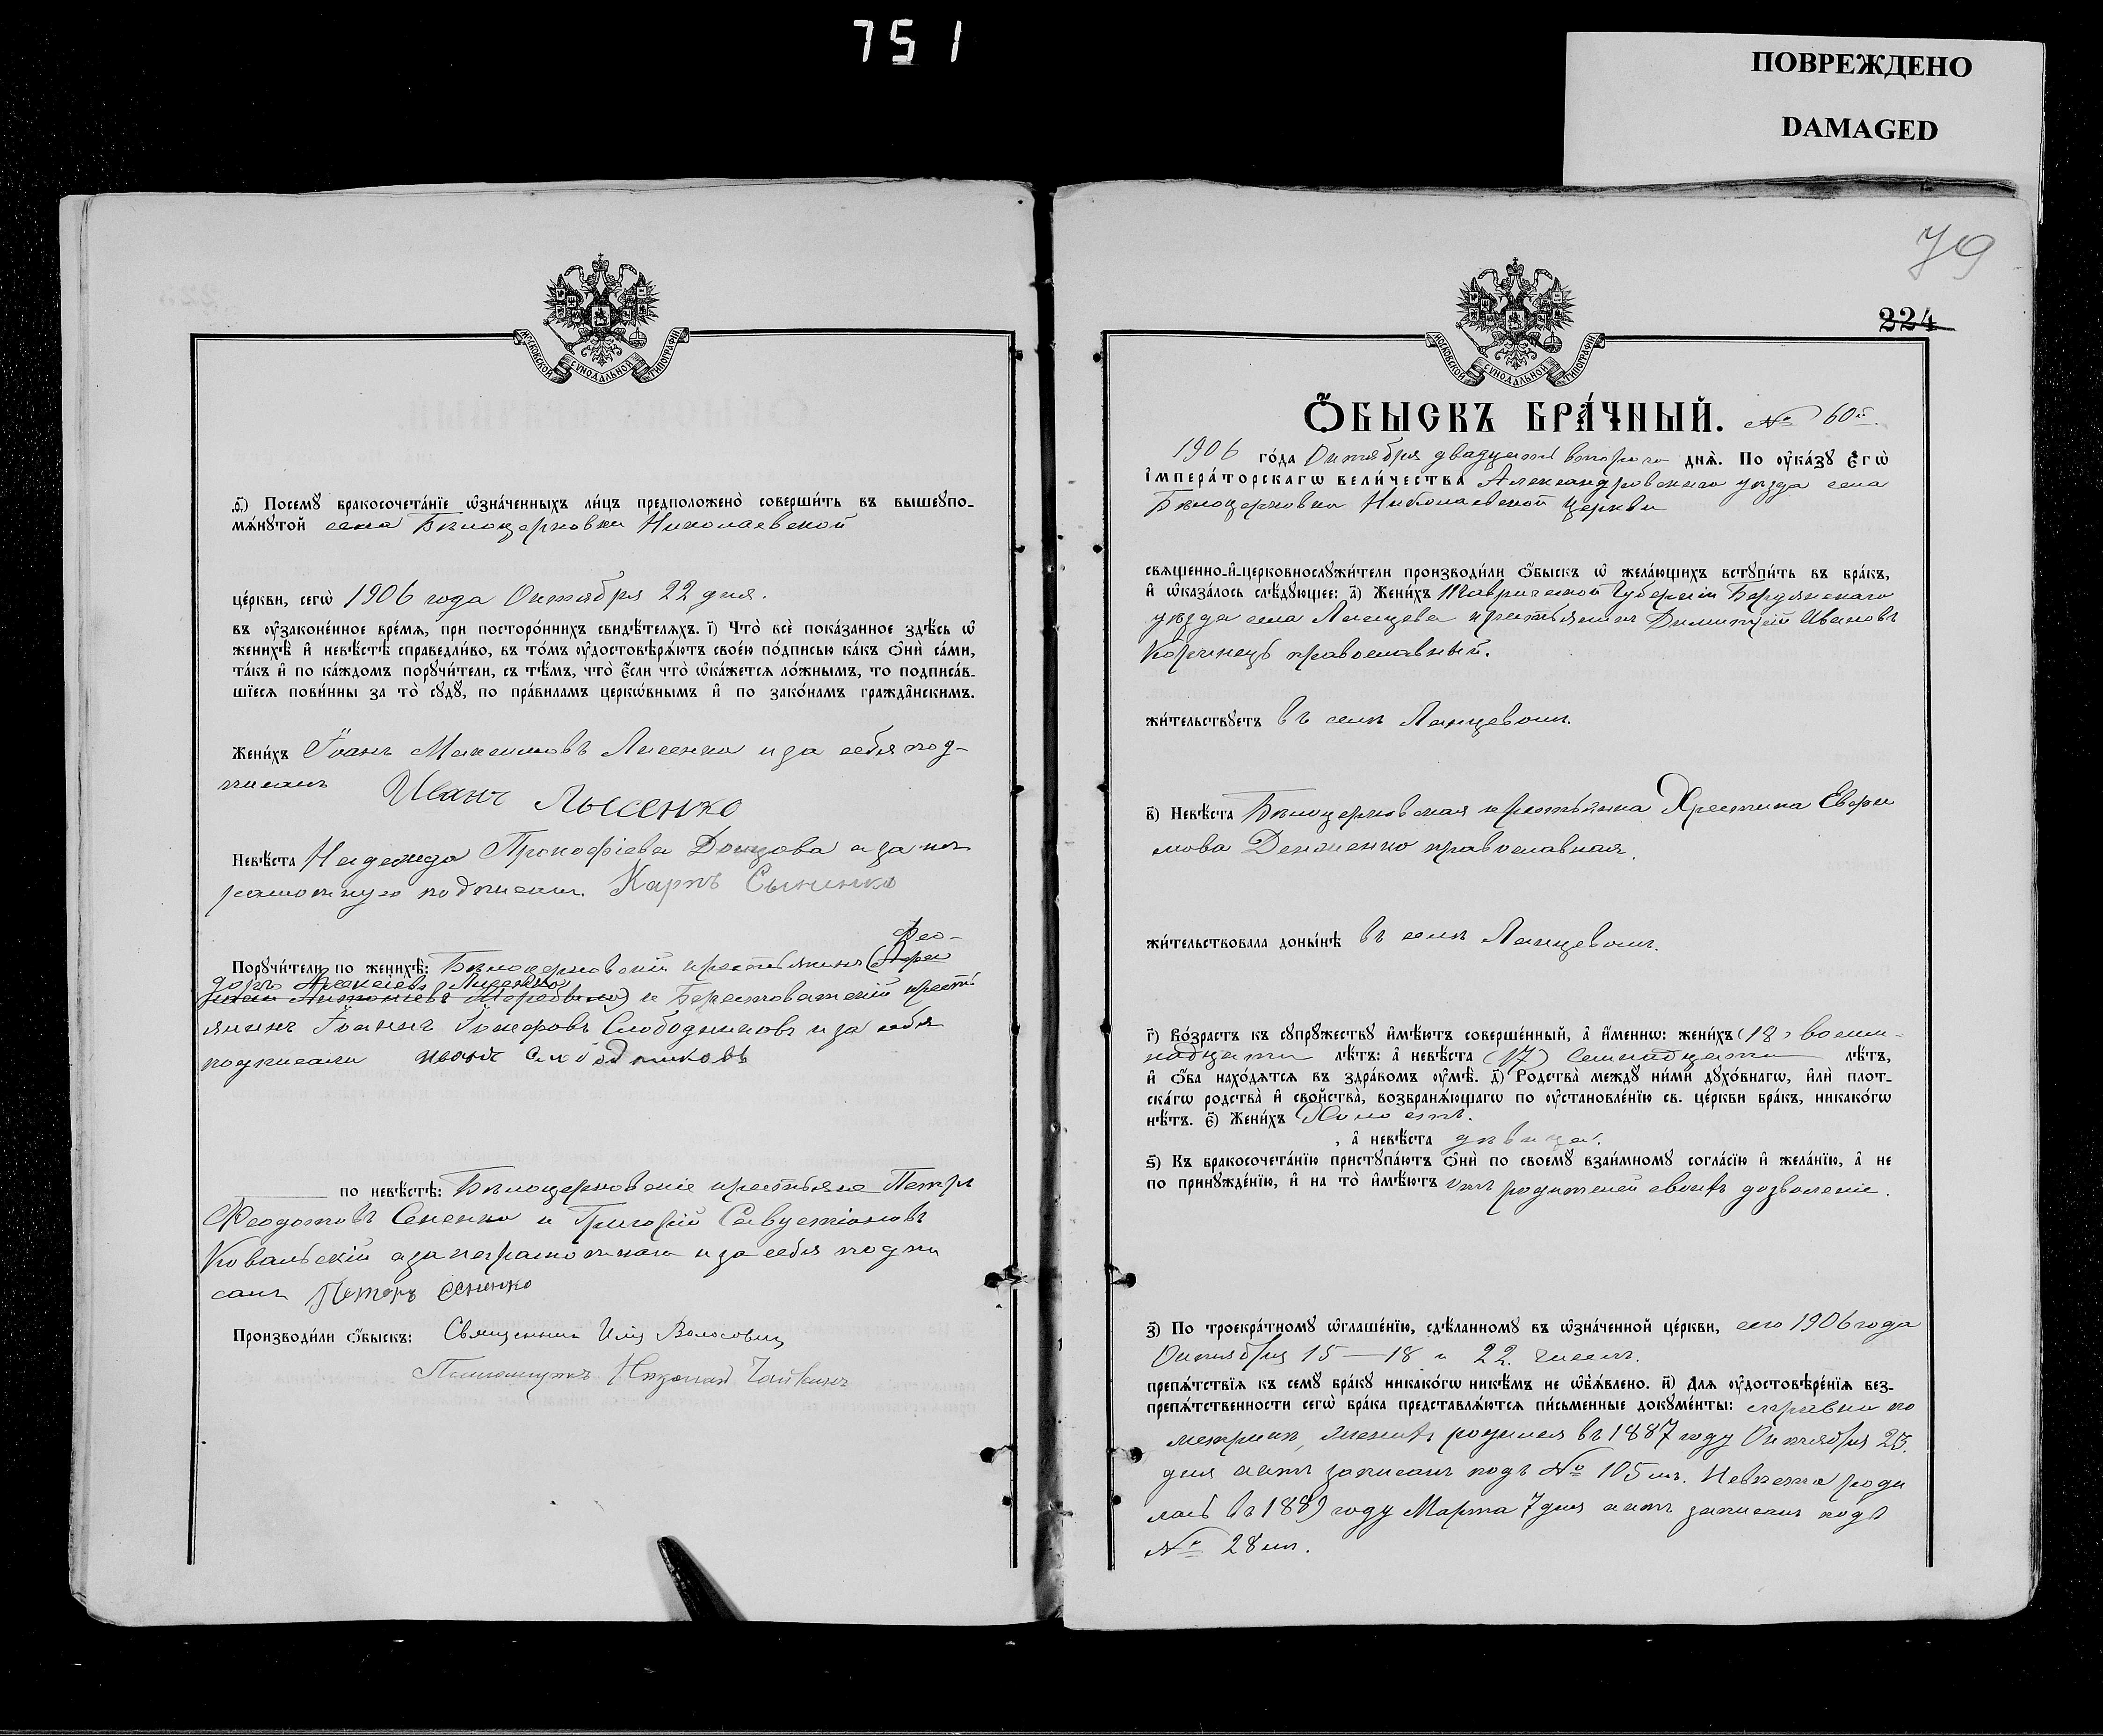 751
ПОВРЕЖДЕНО
DAMAGED
МОСКОВСКОЙ СѴНОДАЛЬНОЙ ТИПОГРАФІИ
ѳ҃) Посемꙋ̀ бракосочета́нїе ѡ҆зна́ченныхъ ли́цъ предположено̀ соверши́ть въ вышеꙋпо-
мѧ́нꙋтой села Бѣлоцерковки Николаевской
це́ркви, сегѡ̀ 1906 года Октября 22 дня.
въ ᲂу҆законе́нное вре́мѧ, при посторо́ннихъ свидѣ́телѧхъ. і҃) Что̀ всѐ пока́занное здѣ́сь ѡ҆
женихѣ̀ и҆ невѣ́стѣ справедли́во, въ то́мъ ᲂу҆достовѣрѧ́ютъ свое́ю по́дписью ка́къ ѻ҆нѝ са́ми,
та́къ и҆ по ка́ждомъ порꙋчи́тели, съ тѣ́мъ, что̀ є҆́сли что̀ ѡ҆ка́жетсѧ ло́жнымъ, то подписа́в-
шїесѧ пови́нны за то̀ сꙋдꙋ̀, по пра́вилам церкѡ́внымъ и҆ по зако́намъ гражда̑нскимъ.
Жени́хъ Іоанъ Максимовъ Лисенко и за себя под-
писалъ Иванъ Лысенко
Невѣ́ста Надежда Прокофіева Донцова а за не
грамотную подписалъ Карпъ
Фео-
Порꙋчи́тели по женихѣ̀: Бѣлоцерковскій крестьянинъ
доръ Алексіевъ Лисенко и Берестоватскій кресть
янинъ Іоаннъ Слободчиковъ и за себя
подписали иванъ
по невѣ́стѣ: Бѣлоцерковскіе крестьяне Петръ
Феодотовъ Сененко и Григорій
Ковальскій а за неграмотнаго и за себя подпи
салъ Петръ Сененко
Производи́ли ѻ҆́быскъ: Священникъ Илія Волосовичъ
Псаломщикъ Николай
79
224
МОСКОВСКОЙ СѴНОДАЛЬНОЙ ТИПОГРАФІИ
Ѻ҆́БЫСКЪ БРА́ЧНЫЙ. № 60й.
1906 го́да Октября двадцать второго днѧ̀. По ᲂу҆ка́зꙋ Є҆гѡ̀
І҆мпера́торскагѡ вели́чества Александровскаго уѣзда села
Бѣлоцерковки Николаевской церкви
свѧщенно-и҆-церковнослꙋжи́тели производи́ли ѻ҆́быскъ ѡ҆ жела́ющихъ встꙋпи́ть въ бра́къ,
и҆ ѡ҆каза́лось слѣ́дꙋющее: а҃) Жени́хъ Таврической Губерніи Бердянскаго
уѣзда села Ланцева крестьянинъ Димитрій Ивановъ
Коринець православный.
жи́тельствꙋетъ въ селѣ Ланцевомъ.
в҃) Невѣ́ста Бѣлоцерковская крестьянка Христина Евфи
мова Демченко православная.
жи́тельствовала доны́нѣ въ селѣ Ланцевомъ.
г҃) Во́зрастъ къ сꙋпрꙋ́жествꙋ и҆мѣ́ютъ соверше́нный, а҆ и҆́менно: жени́хъ (18) восем-
надцати лѣ́тъ: а҆ невѣ́ста (17) семнадцати лѣ́тъ,
и҆ ѻ҆́ба нахо́дѧтсѧ въ здра́вомъ ᲂу҆мѣ̀. д҃) Родства̀ междꙋ̀ ни́ми дꙋхо́внагѡ, и҆лѝ плот-
ска́гѡ родства̀ и҆ сво́йства, возбранѧ́ющагѡ по ᲂу҆становле́нїю св. це́ркви бра́къ, никако́гѡ
нѣ́тъ. є҃) Жени́хъ Холостъ.
, а҆ невѣ́ста дѣвица.
ѕ҃) Къ бракосочета́нїю пристꙋпа́ютъ ѻ҆нѝ по своемꙋ̀ взаи́мномꙋ согла́сїю и҆ жела́нїю, а҆ не
по принꙋжде́нїю, и҆ на то̀ и҆мѣ́ютъ отъ родителей своихъ дозволеніе.
з҃) По троекра́тномꙋ ѡ҆глаше́нїю, сдѣ́ланномꙋ въ ѡ҆зна́ченной це́ркви, сего 1906 года
Октября 15 — 18 и 22. числъ.
препѧ́тствїѧ къ семꙋ̀ бра́кꙋ никако́гѡ никѣ́мъ не ѡ҆б̾ѧ́влено. и҃) Длѧ ᲂу҆достовѣре́нїѧ без-
препѧ́тственности сегѡ̀ бра́ка представлѧ́ютсѧ пи́сьменные докꙋме́нты: справки по
метрикѣ, женихъ родился въ 1887 году Октября
дня актъ записанъ подъ № 105мъ. Невѣста роди
лась въ 1889 году Марта 7 дня актъ записанъ подъ
№ 28мъ.